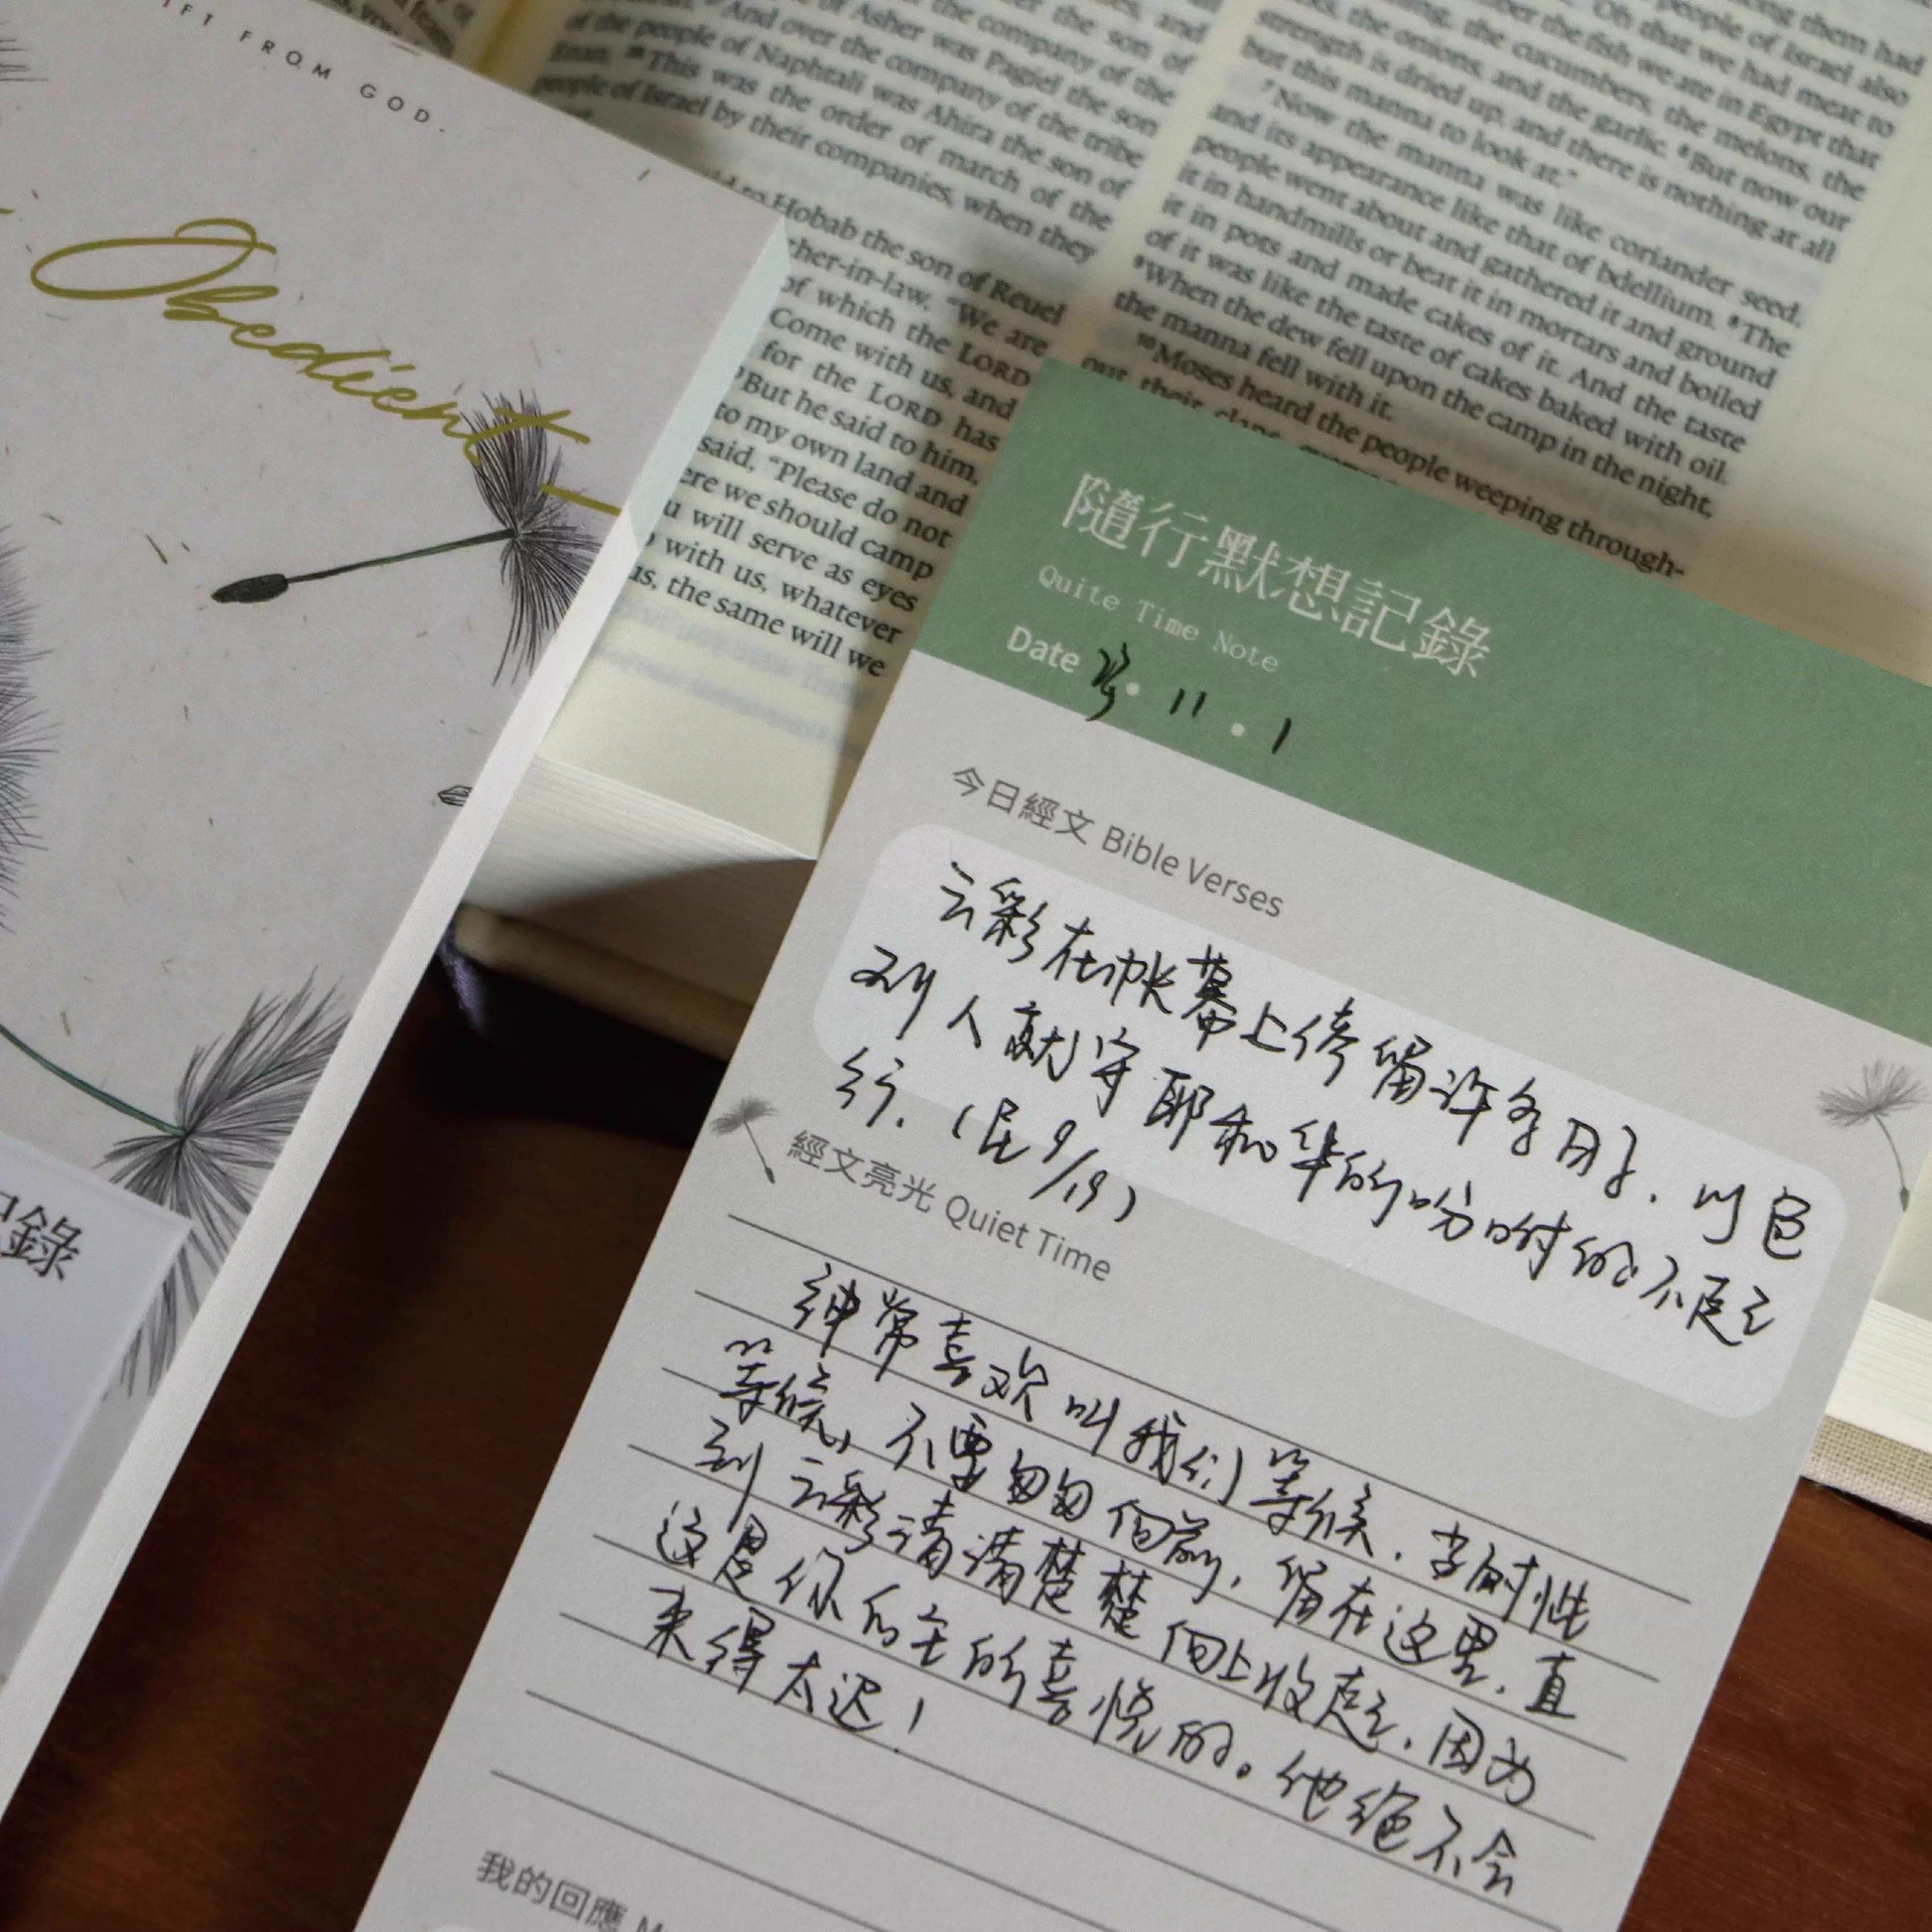 IFT FROM GOD.
Obedient
記錄
of Asher was Pagiel the son
And over the company of the
of the people of Naphtali was Ahira the son of
Enan. 28 This was the order of march of the
people of Israel by their companies, when they
to Hobab the son of Reuel
her-in-law, "We are
of which the LORD
Come with us, and
for the LORD has
But he said to him,
to my own land and
said, "Please do not
ere we should camp
u will serve as eyes
with us, whatever
us, the same will we
people of Israel also
Oh that we had meat to
the fish we ate in Egypt that
the cucumbers, the melons, the
the onions, and the garlic. 6 But now our
strength is dried up, and there is nothing at all
but this manna to look at."
7 Now the manna was like coriander seed,
and its appearance like that of bdellium. 8 The
people went about and gathered it and ground
it in handmills or beat it in mortars and boiled
it in pots and made cakes of it. And the taste
of it was like the taste of cakes baked with oil.
9 When the dew fell upon the camp in the night,
the manna fell with it.
10 Moses heard the people weeping through-
out their clans,
隨行默想記錄
Quite Time Note
Date 25 · 11 · 1
今日經文 Bible Verses
云彩在帐幕上停留许多日子，以色
列人就守耶和华的吩咐的不起
行.（民9/19）
經文亮光 Quiet Time
神常喜欢叫我们等候，古耐性
等候，不要匆匆向前，留在这里，直
到云彩清清楚楚向上收起，因为
这是你的主的喜悦的。他绝不会
来得太迟！
我的回應